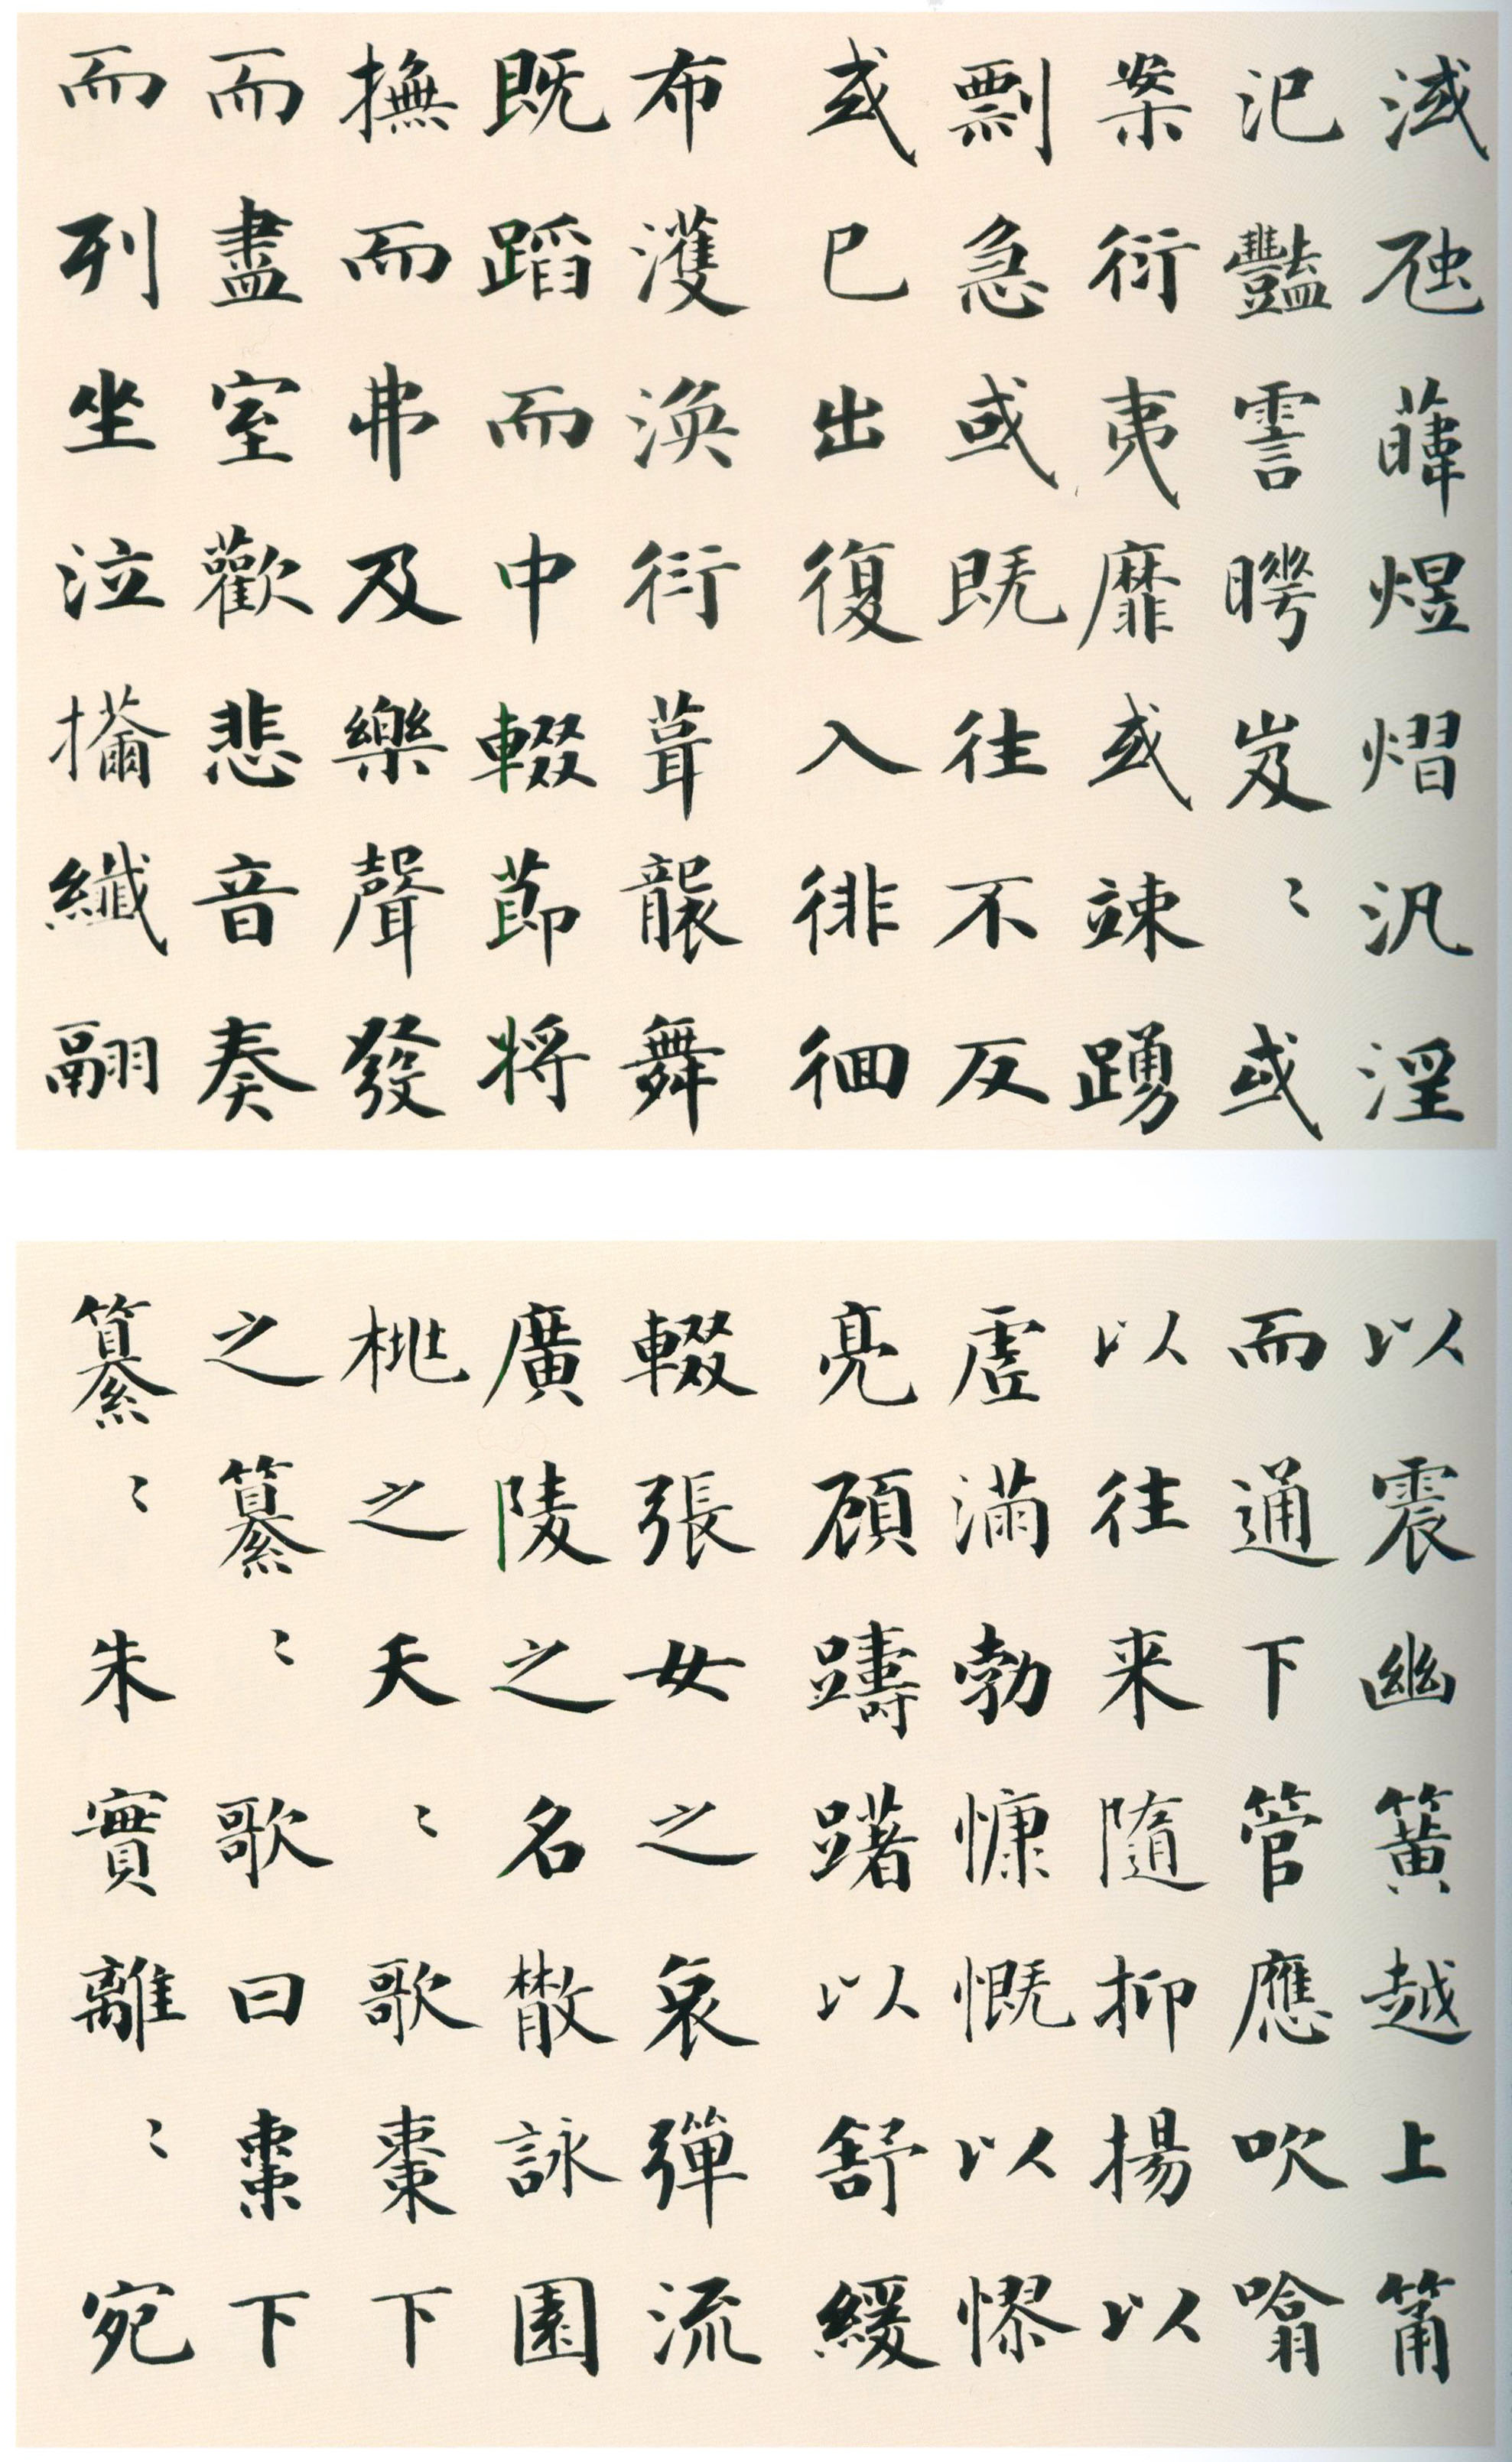 淢虺韡煜熠汎淫
氾豔霅曄岌〻或
案衍夷靡或竦踴
剽急或既往不反
或已出復入徘徊
布濩渙衍葺襲舞
既蹈而中輟莭將
撫而弗及樂聲發
而盡室歡悲音奏
而列坐泣纖翮
以震幽簧越上筩
而通下管應吹噏
以往来隨抑揚以
虛滿勃慷慨以憀
亮顧躊躇以舒緩
輟張女之哀彈流
廣陵之名散詠園
桃之夭〻歌棗下
之纂〻歌曰棗下
纂〻朱實離〻宛